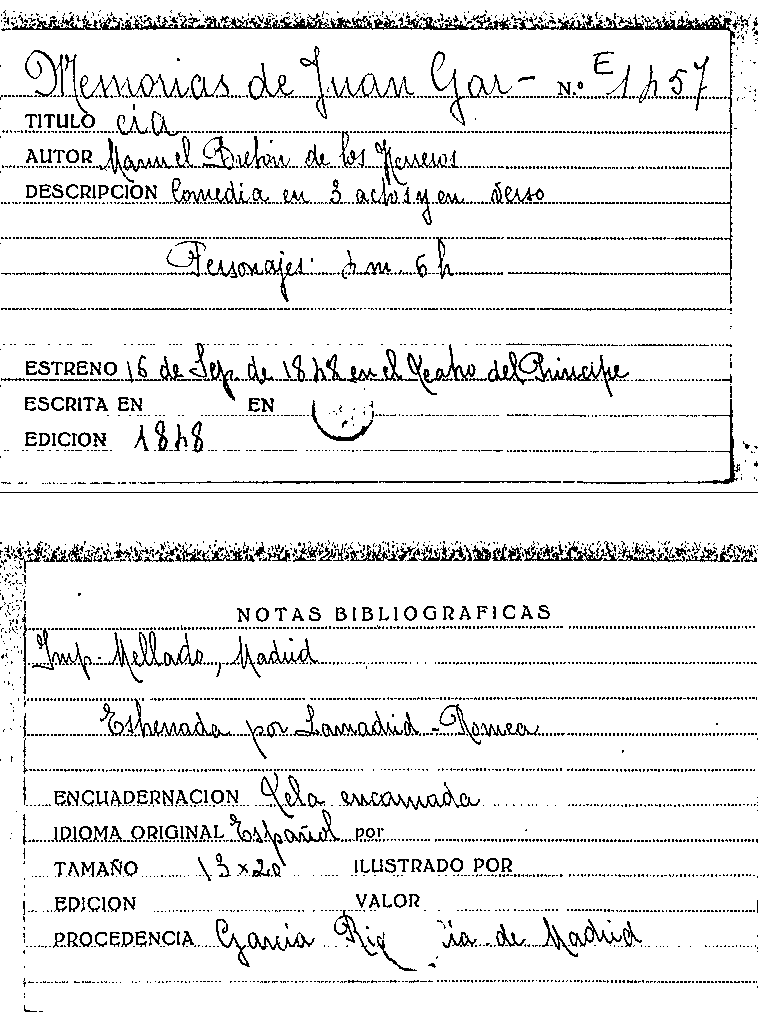 Memorias de Juan Gar- N.º E 1457
TITULO cía
AUTOR Manuel Bretón de los Herreros
DESCRIPCION Comedia en 3 actos y en verso
Personajes: 4 m. 6 h
ESTRENO 16 de Sep. de 1848 en el Teatro del Principe
ESCRITA EN EN
EDICION 1848
NOTAS BIBLIOGRAFICAS
Imp. Mellado, Madrid
Estrenada por Lamadrid - Romea
ENCUADERNACION Tela encarnada
IDIOMA ORIGINAL Español por
TAMAÑO 13 x 20 ILUSTRADO POR
EDICION VALOR
PROCEDENCIA García de Madrid